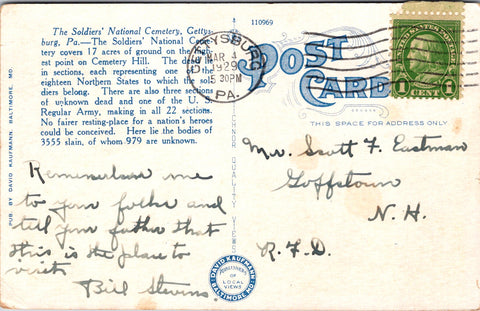 110969
The Soldiers' National Cemetery, Gettys-
burg, Pa.—The Soldiers' National Ceme-
tery covers 17 acres of ground on the high-
est point on Cemetery Hill. The dead
in sections, each representing one of the
eighteen Northern States to which the sol-
diers belong. There are also three sections
of unknown dead and one of the U. S.
Regular Army, making in all 22 sections.
No fairer resting-place for a nation's heroes
could be conceived. Here lie the bodies of
3555 slain, of whom 979 are unknown.
GETTYSBURG
MAR 4
1929
5 30PM
PA.
POST
CARD
UNITED STATES POSTAGE
1 CENT 1
THIS SPACE FOR ADDRESS ONLY
PUB. BY DAVID KAUFMANN, BALTIMORE, MD.
QUALITY VIEWS
Remember me
to your folks and
tell your father that
this is the place to
visit
Bill Stevens.
Mr. Scott F. Eastman
Goffstown
N. H.
R. F. D.
DAVID KAUFMANN
DISTRIBUTORS
OF
LOCAL
VIEWS
BALTIMORE MD.